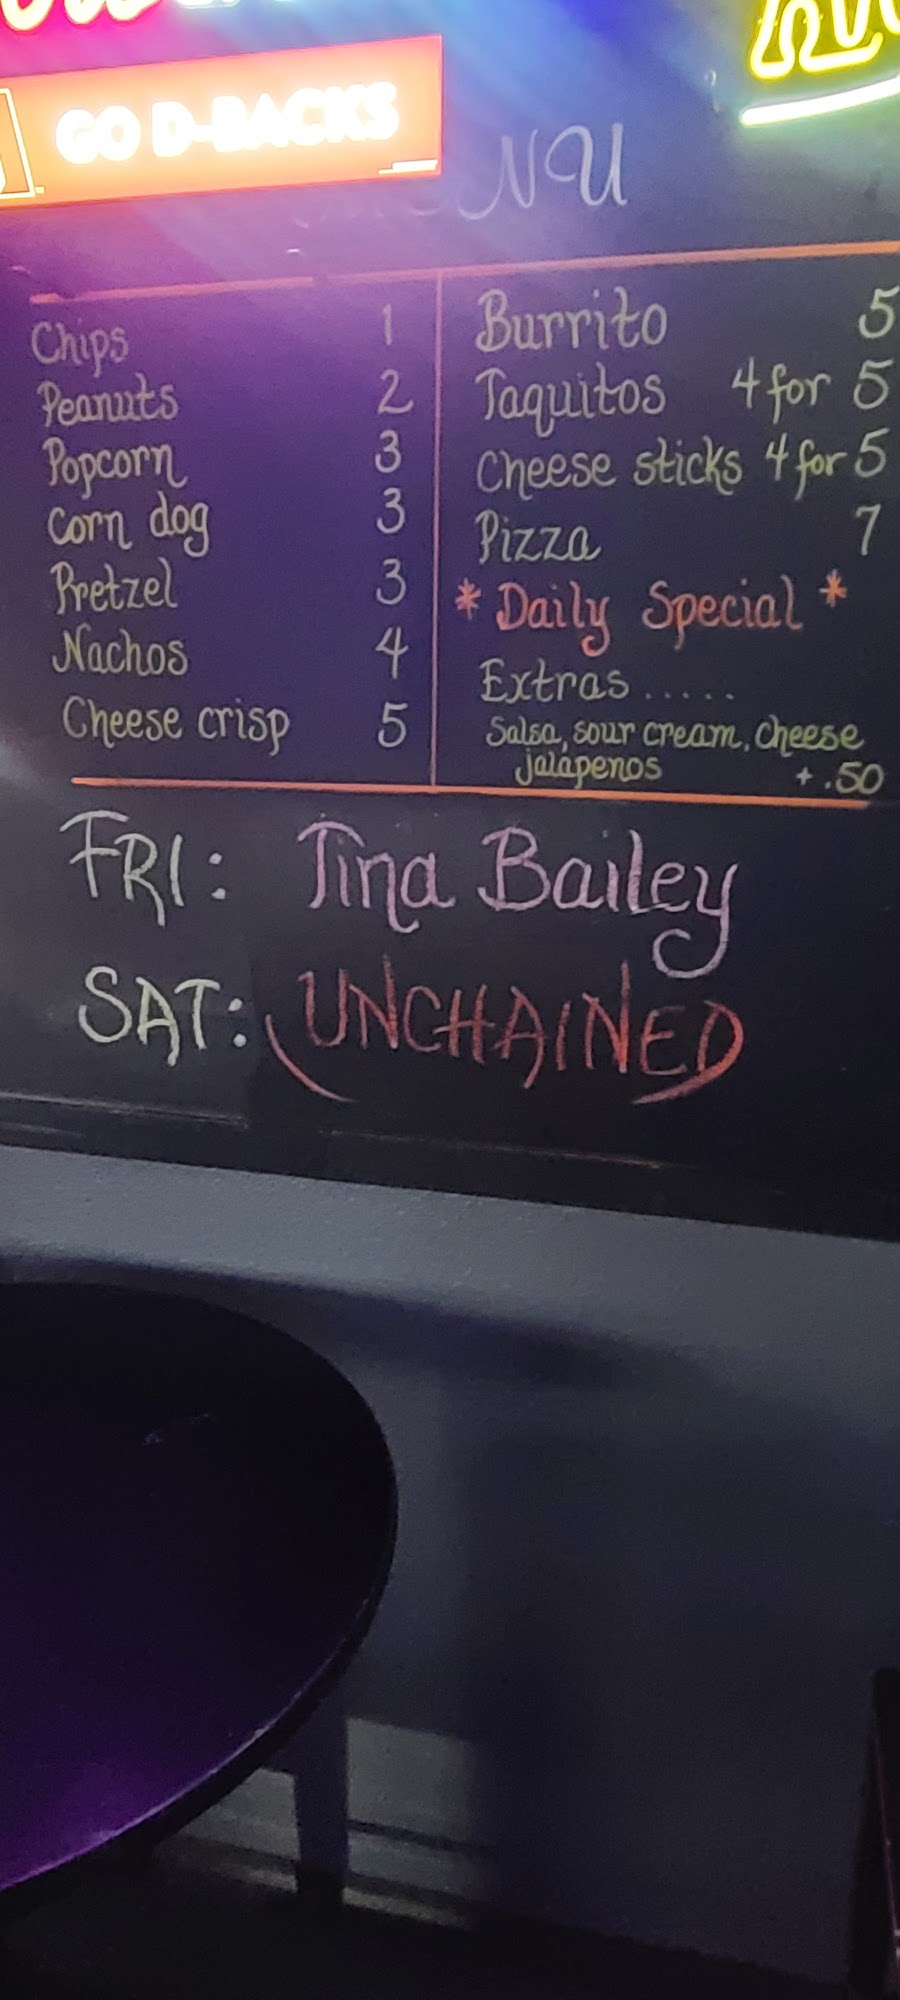 GO D-BACKS
MENU
Chips 1
Peanuts 2
Popcorn 3
Corn dog 3
Pretzel 3
Nachos 4
Cheese crisp 5
Burrito 5
Taquitos 4 for 5
Cheese sticks 4 for 5
Pizza 7
* Daily Special *
Extras.....
Salsa, sour cream, cheese
jalapenos +.50
FRI: Tina Bailey
SAT: UNCHAINED